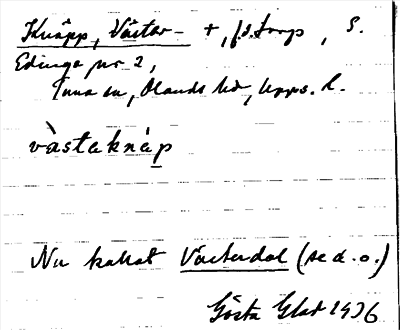 Knäpp, Väster- +, f.d. torp, S.
Edinge nr 2,
Tuna sn, Olands hd, Upps. l.
västaknäp
Nu kallat Västerdal (se d. o.)
Gösta Elat 1936